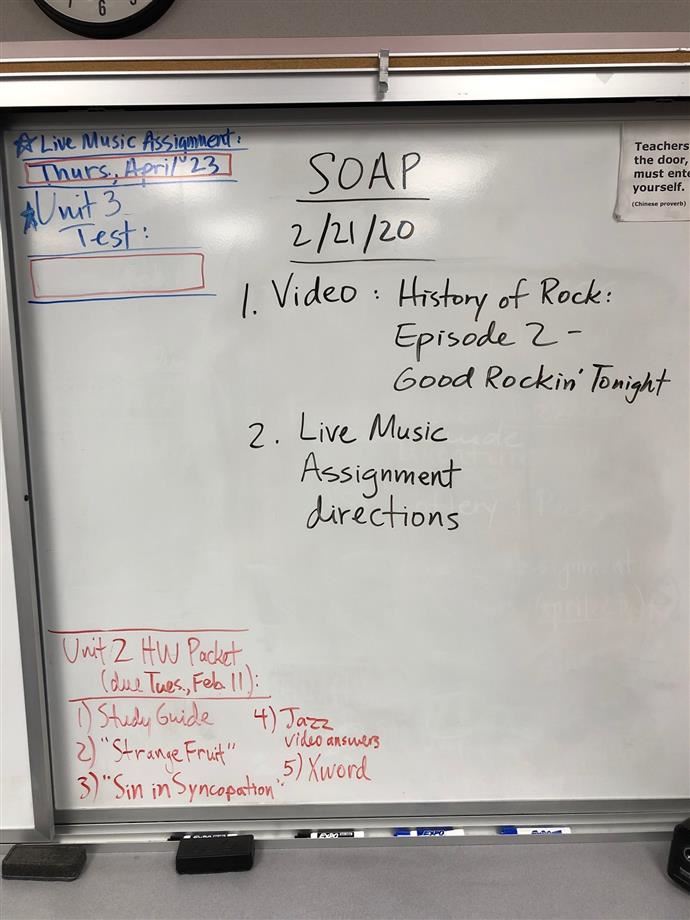 6
☆ Live Music Assignment:
Thurs., April 23
☆ Unit 3
Test:
SOAP
2/21/20
1. Video: History of Rock:
Episode 2 -
Good Rockin' Tonight
2. Live Music
Assignment
directions
Teachers
the door,
must ente
yourself.
(Chinese proverb)
Unit 2 HW Packet
(due Tues., Feb. 11):
1) Study Guide
2) "Strange Fruit"
3) "Sin in Syncopation"
4) Jazz
video answers
5) Xword
EXPO
EXPO
EXPO